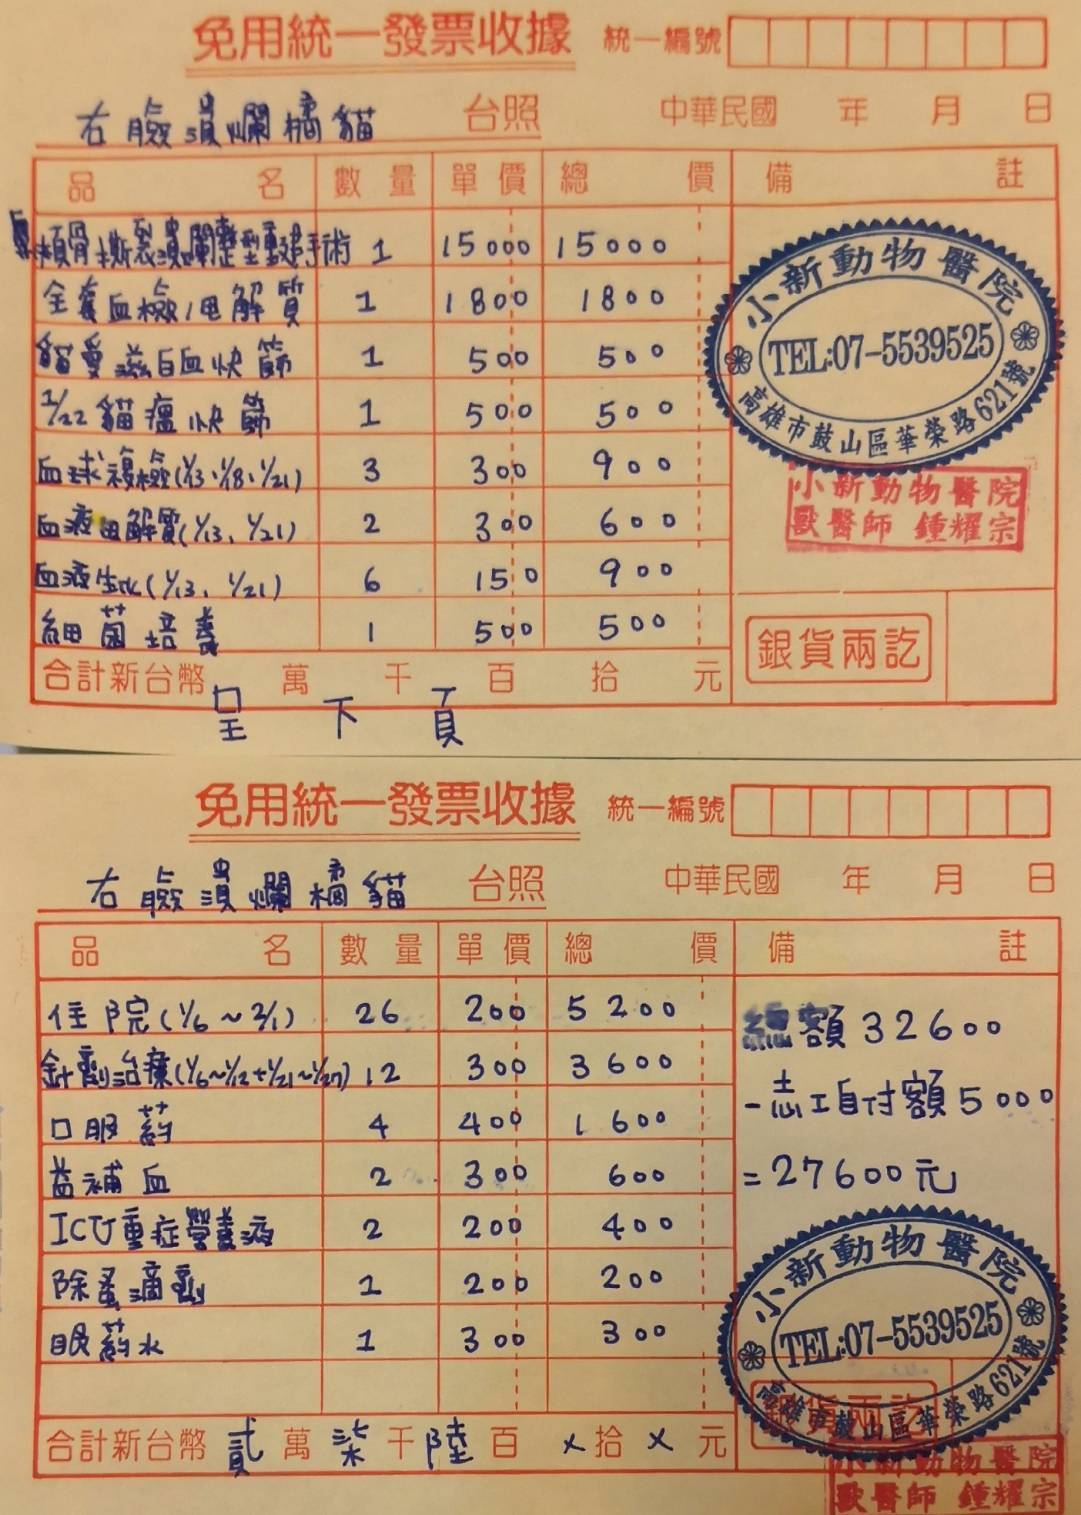 免用統一發票收據 統一編號
右臉潰爛橘貓 台照 中華民國 年 月 日
品名 數量 單價 總價 備註
頰骨撕裂潰爛整型重建手術 1 15000 15000
全套血檢/電解質 1 1800 1800
貓愛滋白血快篩 1 500 500
1/22 貓瘟快篩 1 500 500
血球複檢(1/3、1/18、1/21) 3 300 900
血液电解質(1/13、1/21) 2 300 600
血液生化(1/13、1/21) 6 150 900
細菌培養 1 500 500
合計新台幣 萬 千 百 拾 元
呈下頁
小新動物醫院
TEL:07-5539525
高雄市鼓山區華榮路621號
小新動物醫院
獸醫師 鍾耀宗
銀貨兩訖
免用統一發票收據 統一編號
右臉潰爛橘貓 台照 中華民國 年 月 日
品名 數量 單價 總價 備註
住院(1/6~2/1) 26 200 5200
針劑治療(1/6~1/12+1/21~1/27) 12 300 3600
口服葯 4 400 1600
益補血 2 300 600
ICU重症營養液 2 200 400
除蚤滴劑 1 200 200
眼葯水 1 300 300
合計新台幣 貳萬柒千陸百×拾×元
總額32600
-志工自付額5000
=27600元
小新動物醫院
TEL:07-5539525
高雄市鼓山區華榮路621號
銀貨兩訖
小新動物醫院
獸醫師 鍾耀宗